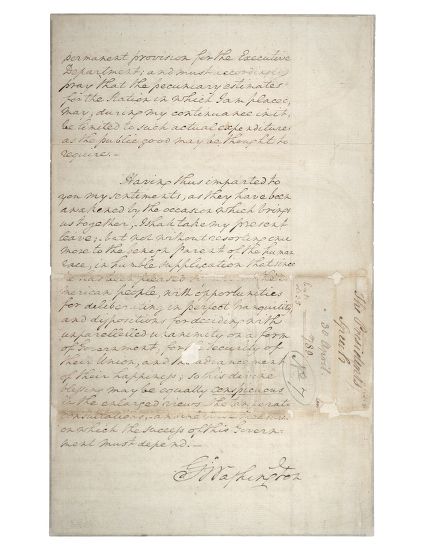 permanent provision for the Executive
Department; and must accordingly
pray that the pecuniary estimates
for the Station in which I am placed,
may, during my continuance in it,
be limited to such actual expenditures
as the public good may be thought to
require.–
Having thus imparted to
you my sentiments, as they have been
awakened by the occasion which brings
us together, I shall take my present
leave; but not without resorting once
more to the benign Parent of the human
race, in humble supplication that since
he has been pleased
American people, with opportunities
for deliberating in perfect tranquility,
and dispositions for deciding with
unparalleled unanimity on a form
of Government, for the security of
their Union, and the advancement
of their happiness; so his divine
blessing may be equally conspicuous
in the enlarged views, the temperate
consultations, and
on which the success of this Govern-
ment must depend.–
G. Washington
The Presidents
Speech
30 April
1789